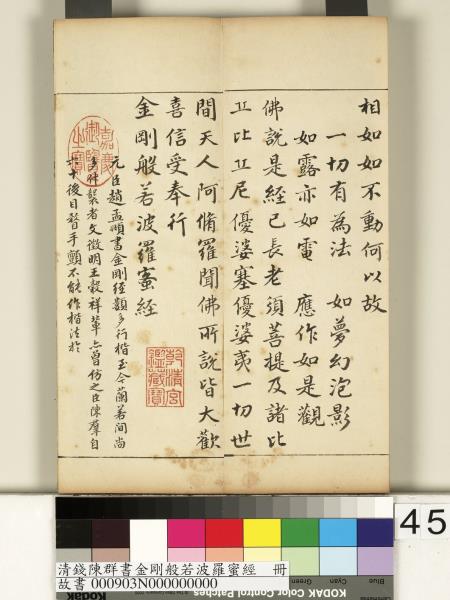 相如如不動何以故
一切有為法 如夢幻泡影
如露亦如電 應作如是觀
佛說是經已長老須菩提及諸比
丘比丘尼優婆塞優婆夷一切世
間天人阿脩羅聞佛所說皆大歡
喜信受奉行
金剛般若波羅蜜經
乾清宮鑑藏寶
元臣趙孟頫書金剛經顴多行楷至今蘭若間尚
多什襲者文徵明王穀祥輩亦曾仿之臣陳羣自
十後目瞀手顫不能作楷法於
嘉慶御覽之寶
45
Blue
Cyan
Green
清錢陳群書金剛般若波羅蜜經 冊
故書 000903N000000000
Kodak
KODAK Color Control Patches